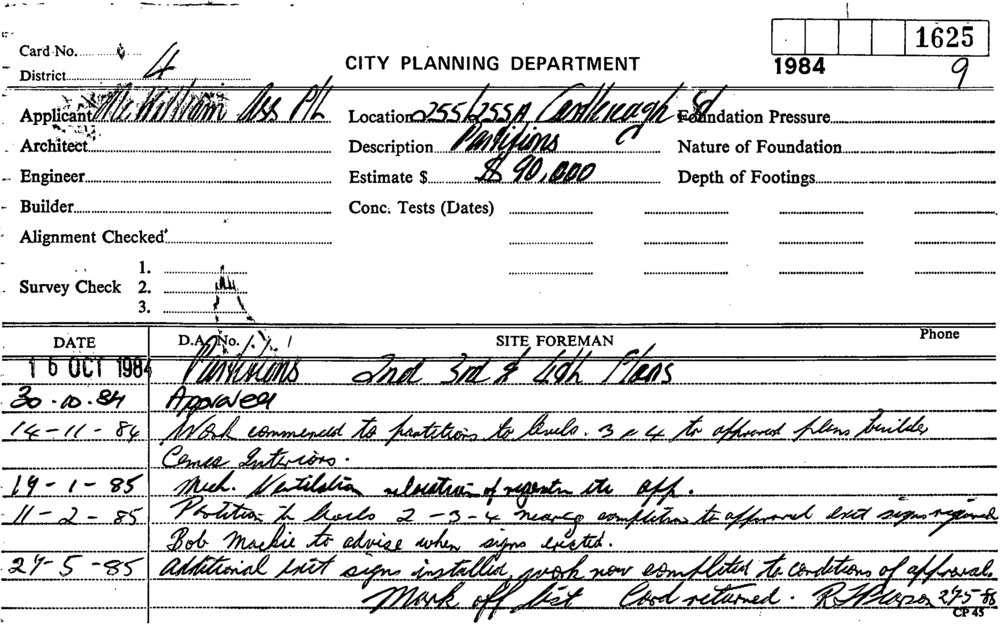 1625
Card No.
District 4
CITY PLANNING DEPARTMENT
1984
9
Applicant McWilliam Ass P/L
Location 255/255A Castlereagh St
Foundation Pressure
Architect
Description Partitions
Nature of Foundation
Engineer
Estimate $ $ 90,000
Depth of Footings
Builder
Conc. Tests (Dates)
Alignment Checked
Survey Check
1.
2.
3.
DATE
D.A. No.
SITE FOREMAN
Phone
16 OCT 1984 Partitions 2nd 3rd & 4th Floors
30-10-84 Approved
14-11-84 Work commenced to partitions to levels. 3 & 4 to approved plans builder
Interiors.
14-1-85 Mech. Ventilation relocation of registers etc app.
11-2-85 Partition to levels 2-3-4 nearing completion to approved exit signs required
Bob Mackie to advise when signs erected.
27-5-85 Additional exit signs installed, work now completed to conditions of approval.
Mark off list Card returned. 27-5-85
CP 45